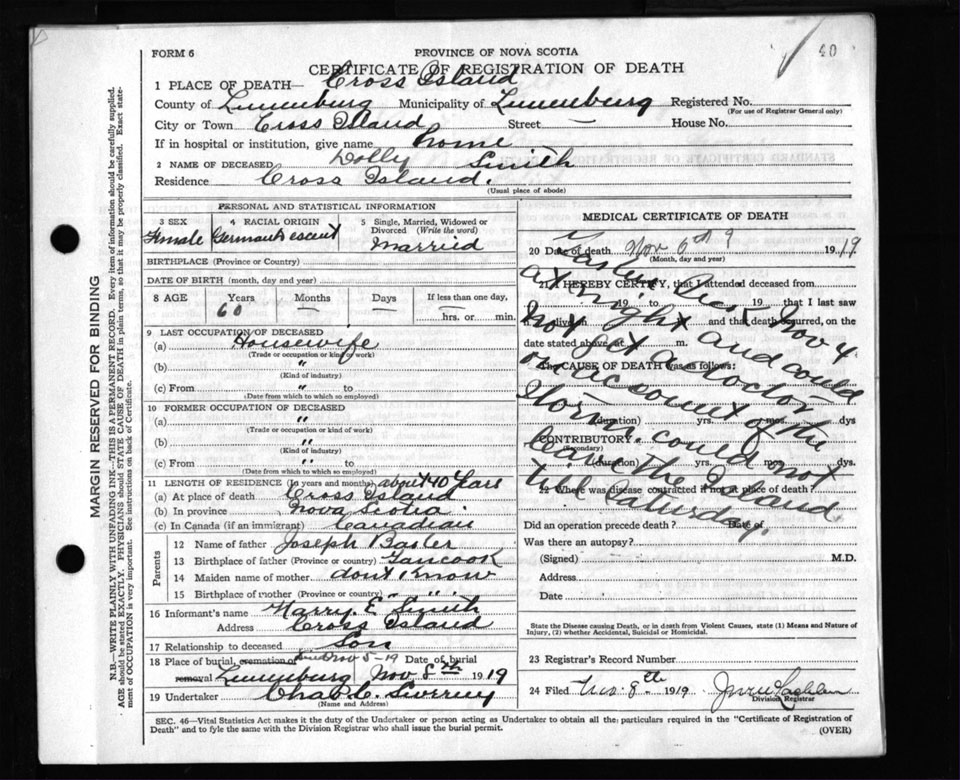 40
FORM 6
PROVINCE OF NOVA SCOTIA
CERTIFICATE OF REGISTRATION OF DEATH
1 PLACE OF DEATH— Cross Island
County of Lunenburg Municipality of Lunenburg Registered No.
(For use of Registrar General only)
City or Town Cross Island Street — House No.
If in hospital or institution, give name home
2 NAME OF DECEASED Dolly Smith
Residence Cross Island.
(Usual place of abode)
MARGIN RESERVED FOR BINDING
N.B.—WRITE PLAINLY WITH UNFADING INK—THIS IS A PERMANENT RECORD. Every item of information should be carefully supplied.
AGE should be stated EXACTLY. PHYSICIANS should STATE CAUSE OF DEATH in plain terms, so that it may be properly classified. Exact statement of OCCUPATION is very important. See instructions on back of Certificate.
PERSONAL AND STATISTICAL INFORMATION
3 SEX Female
4 RACIAL ORIGIN German Descent
5 Single, Married, Widowed or Divorced (Write the word) Married
BIRTHPLACE (Province or Country)
DATE OF BIRTH (month, day and year)
8 AGE Years 60 Months — Days — If less than one day, — hrs. or min.
9 LAST OCCUPATION OF DECEASED
(a) Housewife
(Trade or occupation or kind of work)
(b) "
(Kind of industry)
(c) From " to
(Date from which to which so employed)
10 FORMER OCCUPATION OF DECEASED
(a) "
(Trade or occupation or kind of work)
(b) "
(Kind of industry)
(c) From " to
(Date from which to which so employed)
11 LENGTH OF RESIDENCE (In years and months) about 40 Years
(a) At place of death Cross Island
(b) In province Nova Scotia
(c) In Canada (if an immigrant) Canadian
Parents
12 Name of father Joseph
13 Birthplace of father (Province or country) Tancook
14 Maiden name of mother dont know
15 Birthplace of mother (Province or country) " "
16 Informant's name Harry E. Smith
Address Cross Island
17 Relationship to deceased Son
18 Place of burial, cremation or removal Lunenburg Nov 5-19 Date of burial Nov. 8th 1919
19 Undertaker Chas
(Name and Address)
MEDICAL CERTIFICATE OF DEATH
20 Date of death Nov 6th 9 1919
(Month, day and year)
21 I HEREBY CERTIFY, that I attended deceased from
19 to 19 that I last saw
h alive on and that death occurred, on the
date stated above, at m.
The CAUSE OF DEATH was as follows:
(duration) yrs. mos. dys
CONTRIBUTORY
(Secondary)
(duration) yrs. mos. dys.
22 Where was disease contracted if not at place of death?
Nov 4
at night and could
not get a doctor
on account of the
Storm. could not
leave the Island
till Saturday.
Did an operation precede death? Date of
Was there an autopsy?
(Signed) M.D.
Address
Date
State the Disease causing Death, or in death from Violent Causes, state (1) Means and Nature of Injury, (2) whether Accidental, Suicidal or Homicidal.
23 Registrar's Record Number
24 Filed Nov. 8th 1919
Division Registrar
SEC. 46—Vital Statistics Act makes it the duty of the Undertaker or person acting as Undertaker to obtain all the particulars required in the "Certificate of Registration of
Death" and to fyle the same with the Division Registrar who shall issue the burial permit. (OVER)